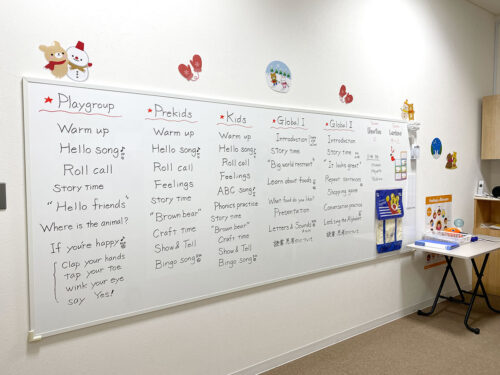 ★Playgroup
Warm up
Hello song♪
Roll call
Story time
"Hello friends"
Where is the animal?
If you're happy♪
Clap your hands
Tap your toe
Wink your eye
say Yes!
★Prekids
Warm up
Hello song
Roll call
Feelings
Story time
"Brown bear"
Craft time
Show & Tell
Bingo song
★Kids
Warm up
Hello song
Roll call
Feelings
ABC song
Phonics practice
Story time
"Brown bear"
Craft time
Show & Tell
Bingo song
★Global I
Introduction
Story time
"Big world restaurant"
Learn about foods
What food do you like?
Presentation
Letters & Sounds
★Global I
Introduction
Story time
"It looks great"
Repeat sentences
Shopping game
Conversation practice